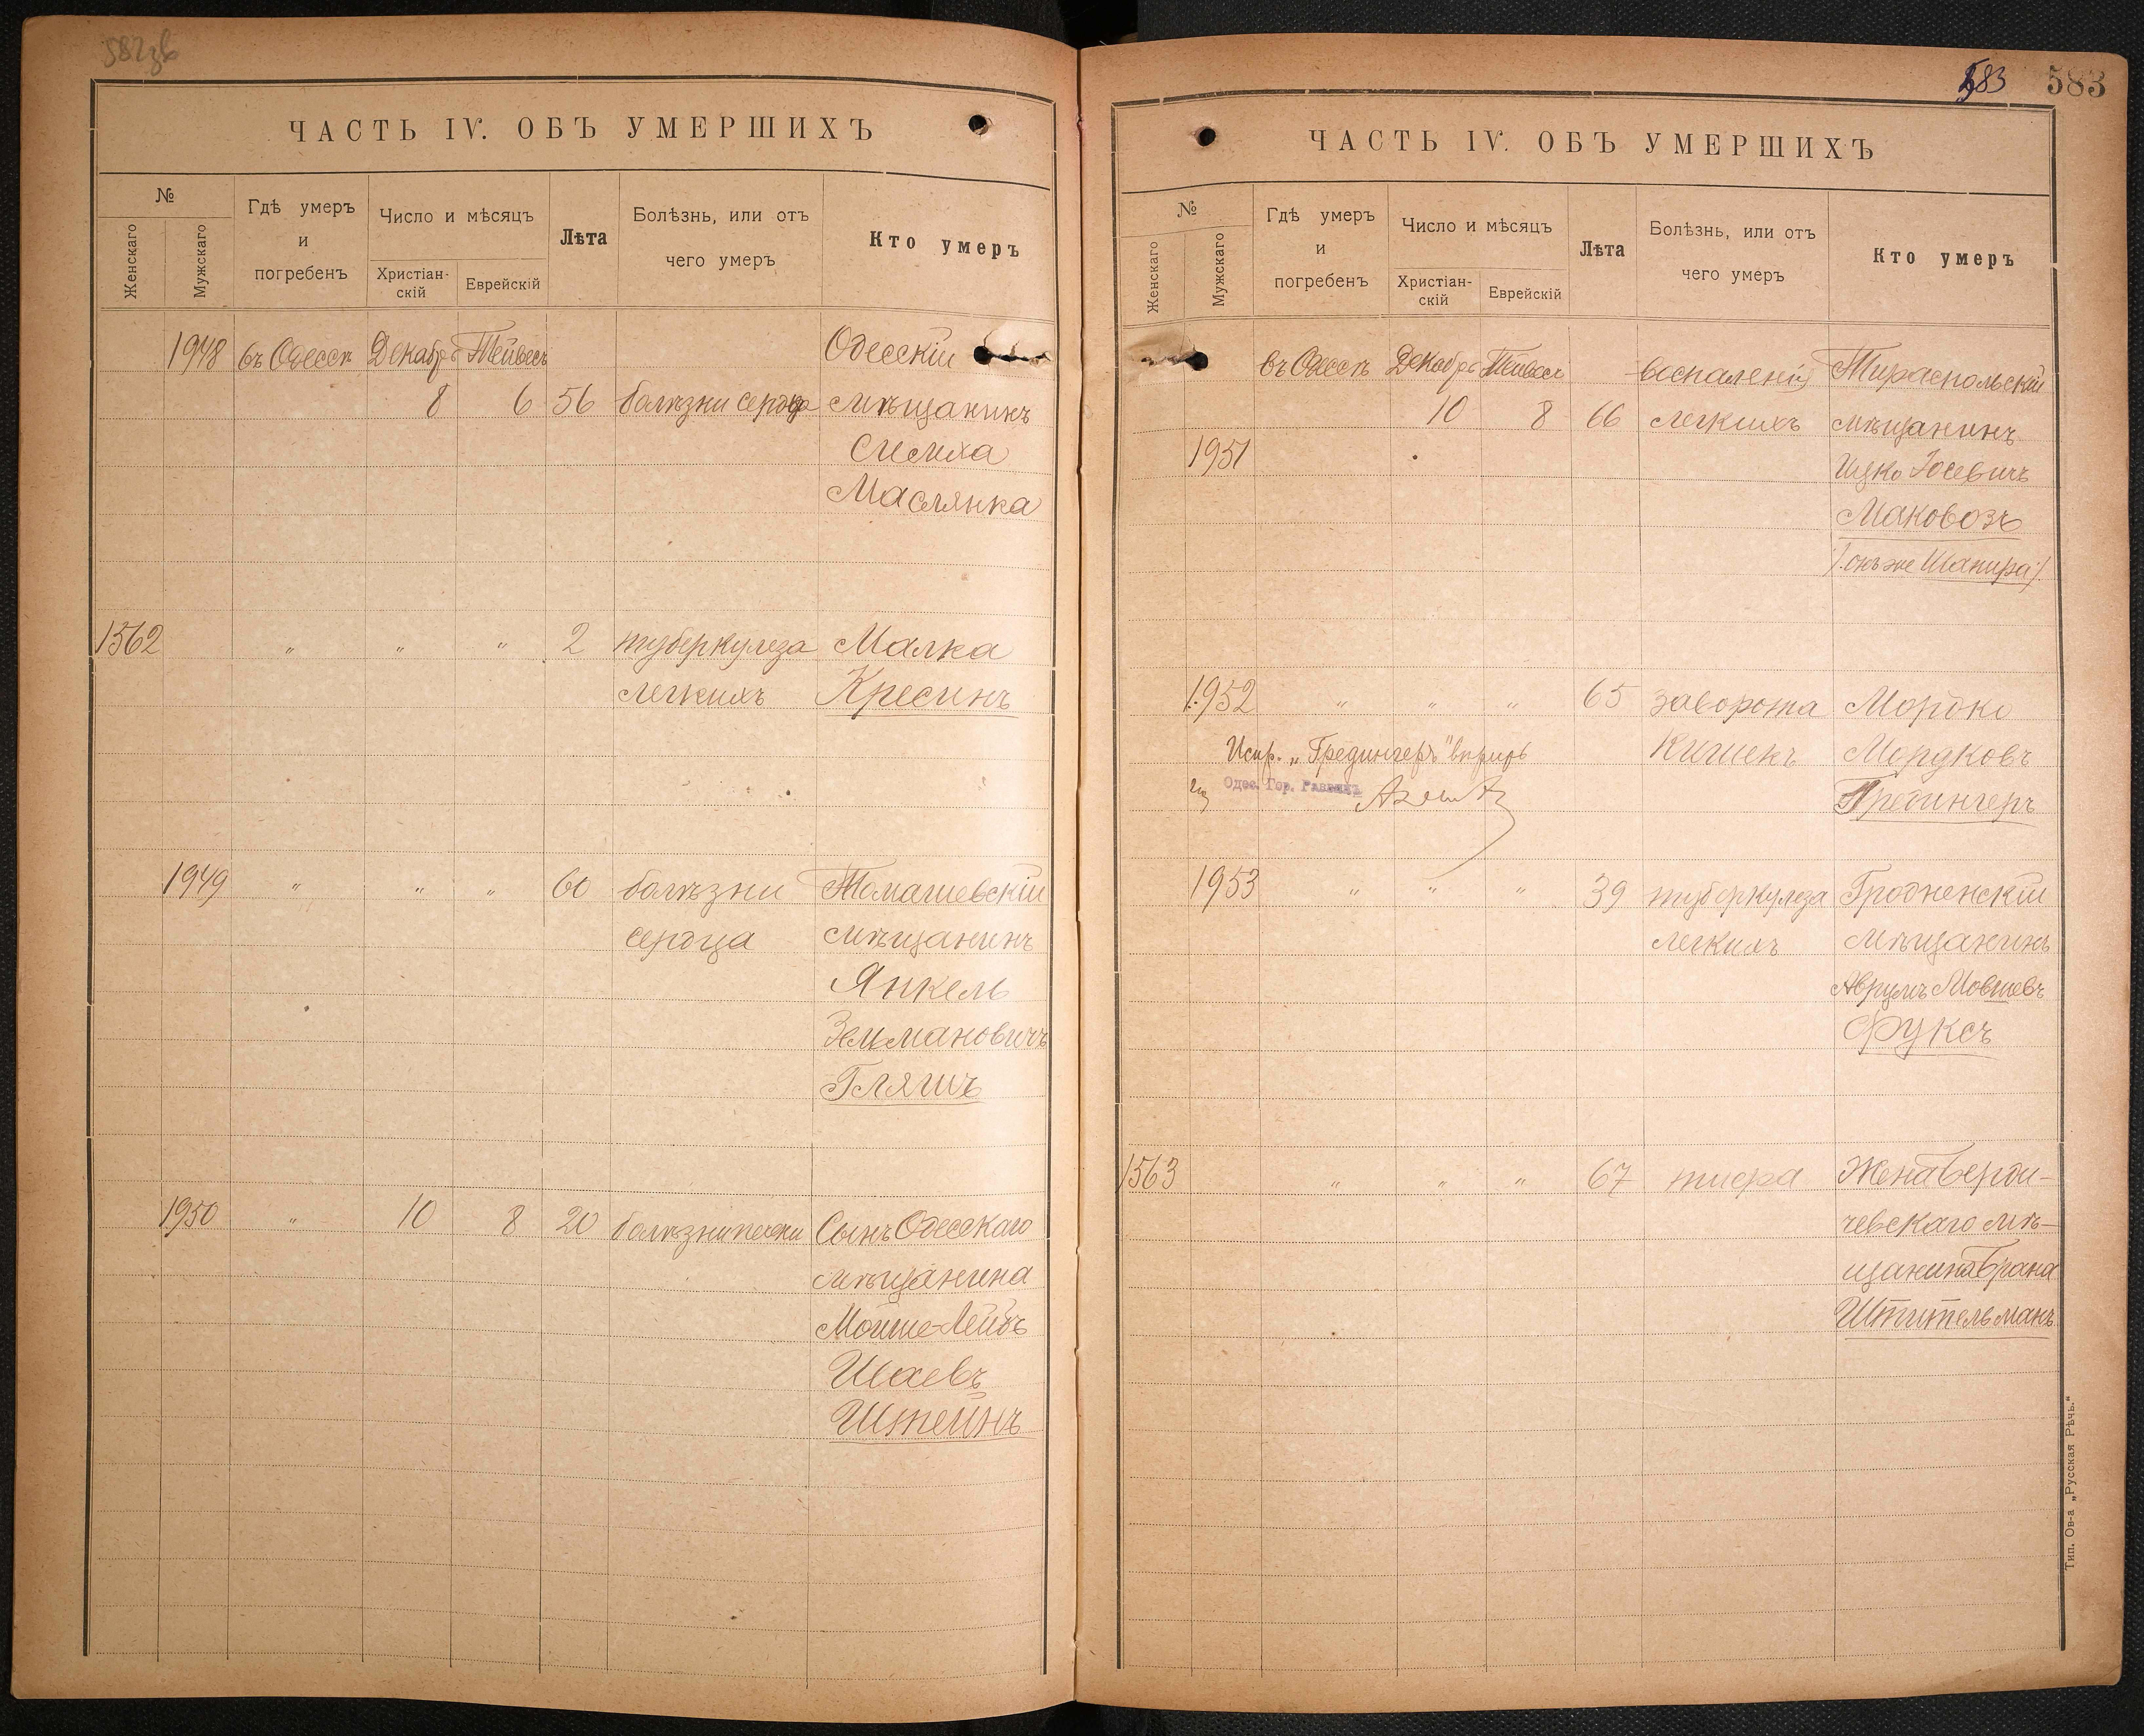 582зв
ЧАСТЬ IV. ОБЪ УМЕРШИХЪ
№
Женскаго
Мужскаго
Гдѣ умеръ
и
погребенъ
Число и мѣсяцъ
Христіан-
скій
Еврейскій
Лѣта
Болѣзнь, или отъ
чего умеръ
Кто умеръ
1948 въ Одессѣ Декабрь Тейвесъ Одесскій
8 6 56 болѣзни сердца мѣщанинъ
Симха
Маслянка
1562 " " " 2 туберкулеза Малка
легкихъ Кресинъ
1949 " " " 60 болѣзни Томашевскій
сердца мѣщанинъ
Янкель
Зельмановичъ
Гляшъ
1950 " 10 8 20 болѣзни почки Сынъ Одесскаго
мѣщанина
Мойше-Лейбъ
Шаевъ
Штейнъ
583 583
ЧАСТЬ IV. ОБЪ УМЕРШИХЪ
№
Женскаго
Мужскаго
Гдѣ умеръ
и
погребенъ
Число и мѣсяцъ
Христіан-
скій
Еврейскій
Лѣта
Болѣзнь, или отъ
чего умеръ
Кто умеръ
въ Одессѣ Декабрь Тейвесъ воспаленія Тираспольскій
10 8 66 легкихъ мѣщанинъ
1951 Ицко Іосевичъ
Маковозъ
/. онъ же Шапира ./
1952 " " " 65 заворота Мордко
Испр. „Гредингеръ" вѣрить кишекъ Мордковъ
Одес. Гор. Раввинъ Гредингеръ
1953 " " " 39 туберкулеза Гродненскій
легкихъ мѣщанинъ
Аврумъ Мовшевъ
Фуксъ
1563 " " " 67 тифа Жена Берди-
чевскаго мѣ-
щанина Брана
Штительманъ
Тип. Ов-а „Русская Рѣчь."